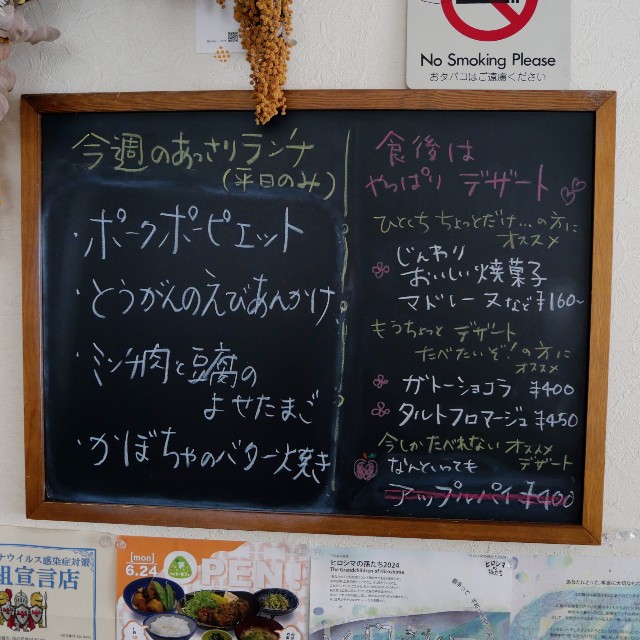 No Smoking Please
おタバコはご遠慮ください
今週のあっさりランチ
(平日のみ)
・ポークポーピエット
・とうがんのえびあんかけ
・ミンチ肉と豆腐の
よせたまご
・かぼちゃのバター焼き
食後は
やっぱり デザート
ひとくち ちょっとだけ…の方に
オススメ
じんわり
おいしい焼菓子
マドレーヌなど¥160~
もうちょっと デザート
たべたいぞ!の方に
オススメ
ガトーショコラ ¥400
タルトフロマージュ ¥450
今しかたべれない オススメ
デザート
なんといっても
アップルパイ ¥400
ナウイルス感染症対策
宣言店
[mon]
6.24
OPEN!
ヒロシマの孫たち2024
The Grandchildren of Hiroshima
ヒロシマ
の
孫たち